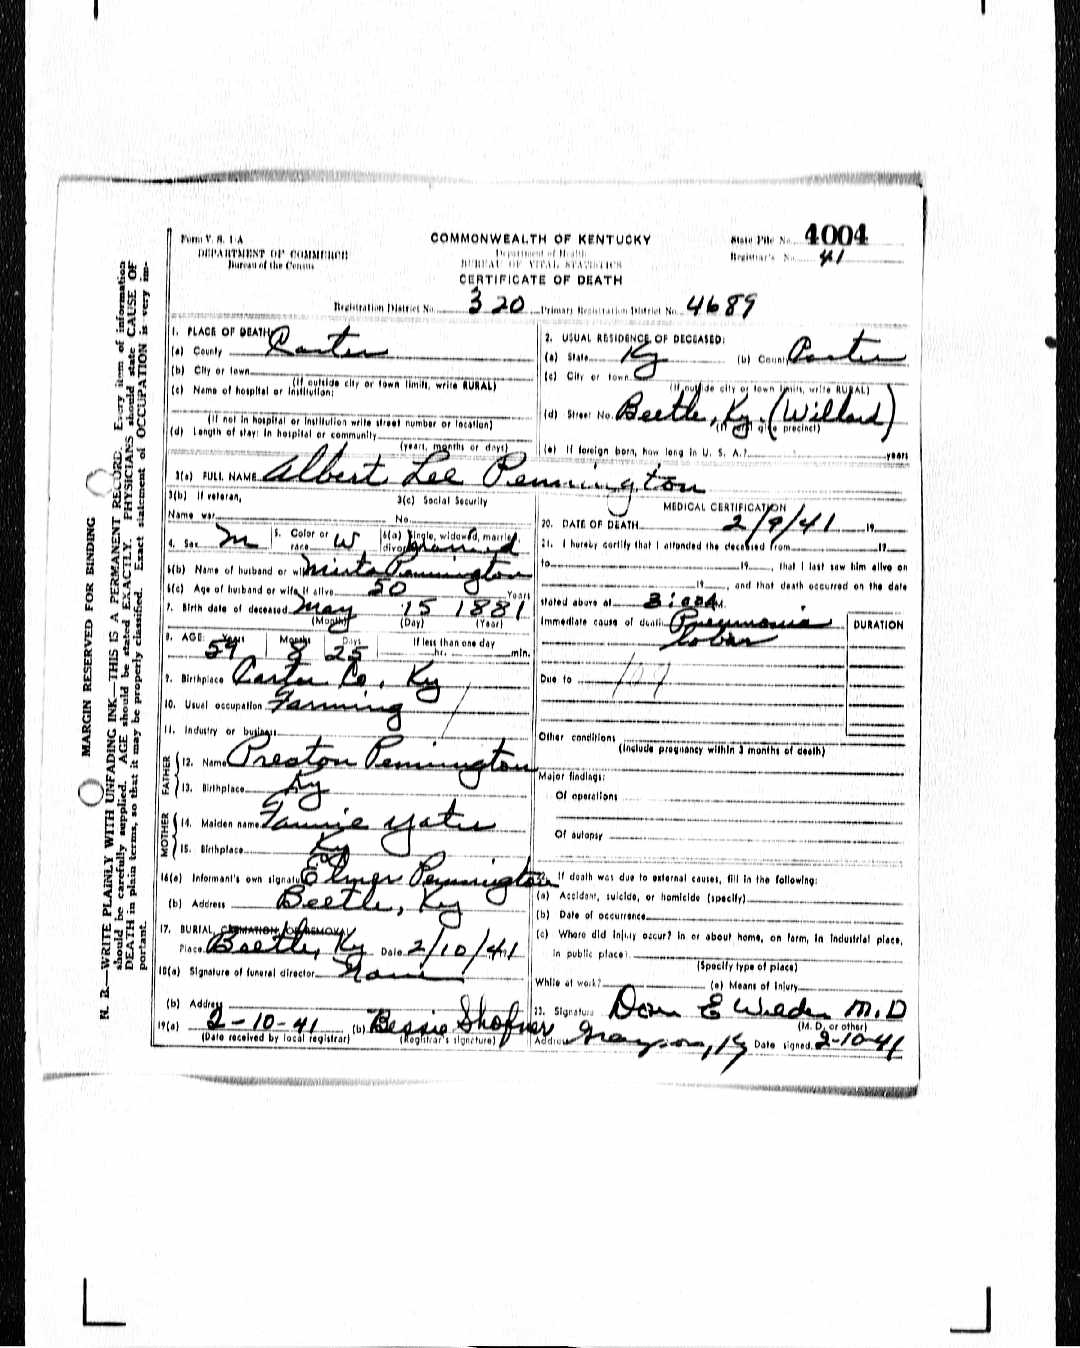 Form V. S. 1-A
DEPARTMENT OF COMMERCE
Bureau of the Census
COMMONWEALTH OF KENTUCKY
Department of Health
BUREAU OF VITAL STATISTICS
CERTIFICATE OF DEATH
State File No. 4004
Registrar's No. 41
Registration District No. 320 Primary Registration District No. 4689
1. PLACE OF DEATH:
(a) County Carter
(b) City or town
(If outside city or town limits, write RURAL)
(c) Name of hospital or institution:
(If not in hospital or institution write street number or location)
(d) Length of stay: In hospital or community
(years, months or days)
2. USUAL RESIDENCE OF DECEASED:
(a) State Ky (b) County Carter
(c) City or town
(If outside city or town limits, write RURAL)
(d) Street No. Beetle, Ky. (Willard)
(If rural give precinct)
(e) If foreign born, how long in U. S. A.? years
3(a) FULL NAME Albert Lee Pennington
3(b) If veteran,
Name war
3(c) Social Security
No.
4. Sex M
5. Color or
race W
6(a) Single, widowed, married,
divorced married
6(b) Name of husband or wife Mirta Pennington
6(c) Age of husband or wife if alive 50 Years
7. Birth date of deceased May 15 1881
(Month) (Day) (Year)
8. AGE: Years Months Days If less than one day
59 8 25 hr. min.
9. Birthplace Carter Co. Ky
10. Usual occupation Farming
11. Industry or business
FATHER
12. Name Preston Pennington
13. Birthplace Ky
MOTHER
14. Maiden name Fannie Yates
15. Birthplace Ky
16(a) Informant's own signature Elmer Pennington
(b) Address Beetle, Ky
17. BURIAL, CREMATION, OR REMOVAL
Place Beetle, Ky Date 2/10/41
18(a) Signature of funeral director None
(b) Address
19(a) 2-10-41 (b) Bessie Shofner
(Date received by local registrar) (Registrar's signature)
MEDICAL CERTIFICATION
20. DATE OF DEATH 2/9/41 19
21. I hereby certify that I attended the deceased from 19
to 19, that I last saw him alive on
19, and that death occurred on the date
stated above at 3:00A.M.
Immediate cause of death Pneumonia
lobar
DURATION
Due to 107
Other conditions
(Include pregnancy within 3 months of death)
Major findings:
Of operations
Of autopsy
If death was due to external causes, fill in the following:
(a) Accident, suicide, or homicide (specify)
(b) Date of occurrence
(c) Where did injury occur? In or about home, on farm, in industrial place,
in public place?
(Specify type of place)
While at work? (e) Means of Injury
23. Signature Don E Wilder M.D
(M. D. or other)
Address Grayson, Ky Date signed 2-10-41
MARGIN RESERVED FOR BINDING
N. B.—WRITE PLAINLY WITH UNFADING INK—THIS IS A PERMANENT RECORD. Every item of information
should be carefully supplied. AGE should be stated EXACTLY. PHYSICIANS should state CAUSE OF
DEATH in plain terms, so that it may be properly classified. Exact statement of OCCUPATION is very im-
portant.